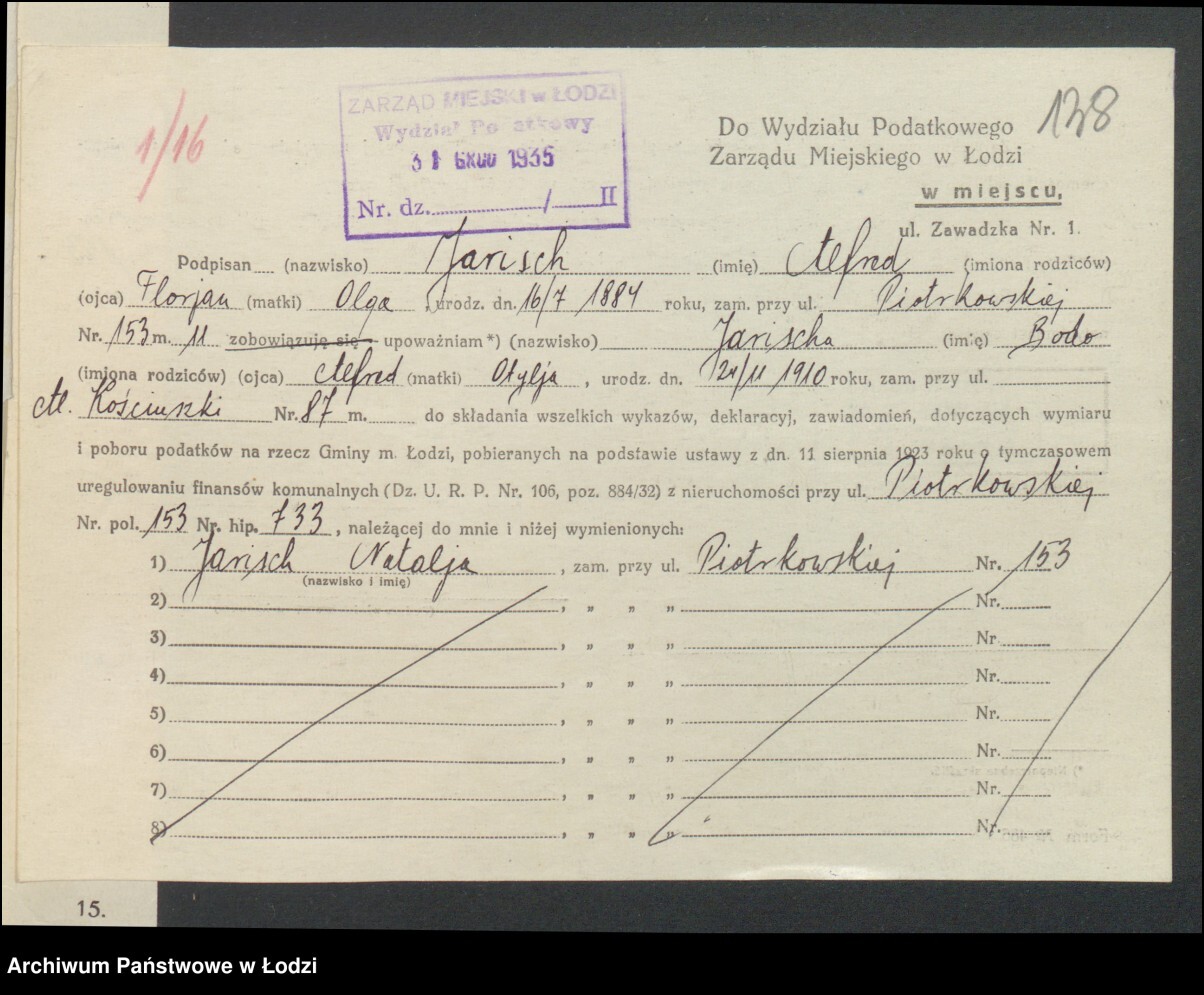 1/16
ZARZĄD MIEJSKI w ŁODZI
Wydział Po atkowy
31 GRUD 1935
Nr. dz. / II
138
Do Wydziału Podatkowego
Zarządu Miejskiego w Łodzi
w miejscu,
ul. Zawadzka Nr. 1.
Podpisan (nazwisko) Jarisch (imię) Alfred (imiona rodziców)
(ojca) Florjan (matki) Olga , urodz. dn. 16/7 1884 roku, zam. przy ul. Piotrkowskiej
Nr. 153 m. 11 zobowiązuję się upoważniam *) (nazwisko) Jarischa (imię) Bodo
(imiona rodziców) (ojca) Alfred (matki) Otylja , urodz. dn. 24/11 1910 roku, zam. przy ul.
Al. Kościuszki Nr. 87 m. do składania wszelkich wykazów, deklaracyj, zawiadomień, dotyczących wymiaru
i poboru podatków na rzecz Gminy m. Łodzi, pobieranych na podstawie ustawy z dn. 11 sierpnia 1923 roku o tymczasowem
uregulowaniu finansów komunalnych (Dz. U. R. P. Nr. 106, poz. 884/32) z nieruchomości przy ul. Piotrkowskiej
Nr. pol. 153 Nr. hip. 733 , należącej do mnie i niżej wymienionych:
1) Jarisch Natalja , zam. przy ul. Piotrkowskiej Nr. 153
(nazwisko i imię)
2) , „ „ „ Nr.
3) , „ „ „ Nr.
4) , „ „ „ Nr.
5) , „ „ „ Nr.
6) , „ „ „ Nr.
7) , „ „ „ Nr.
8) , „ „ „ Nr.
15.
Archiwum Państwowe w Łodzi